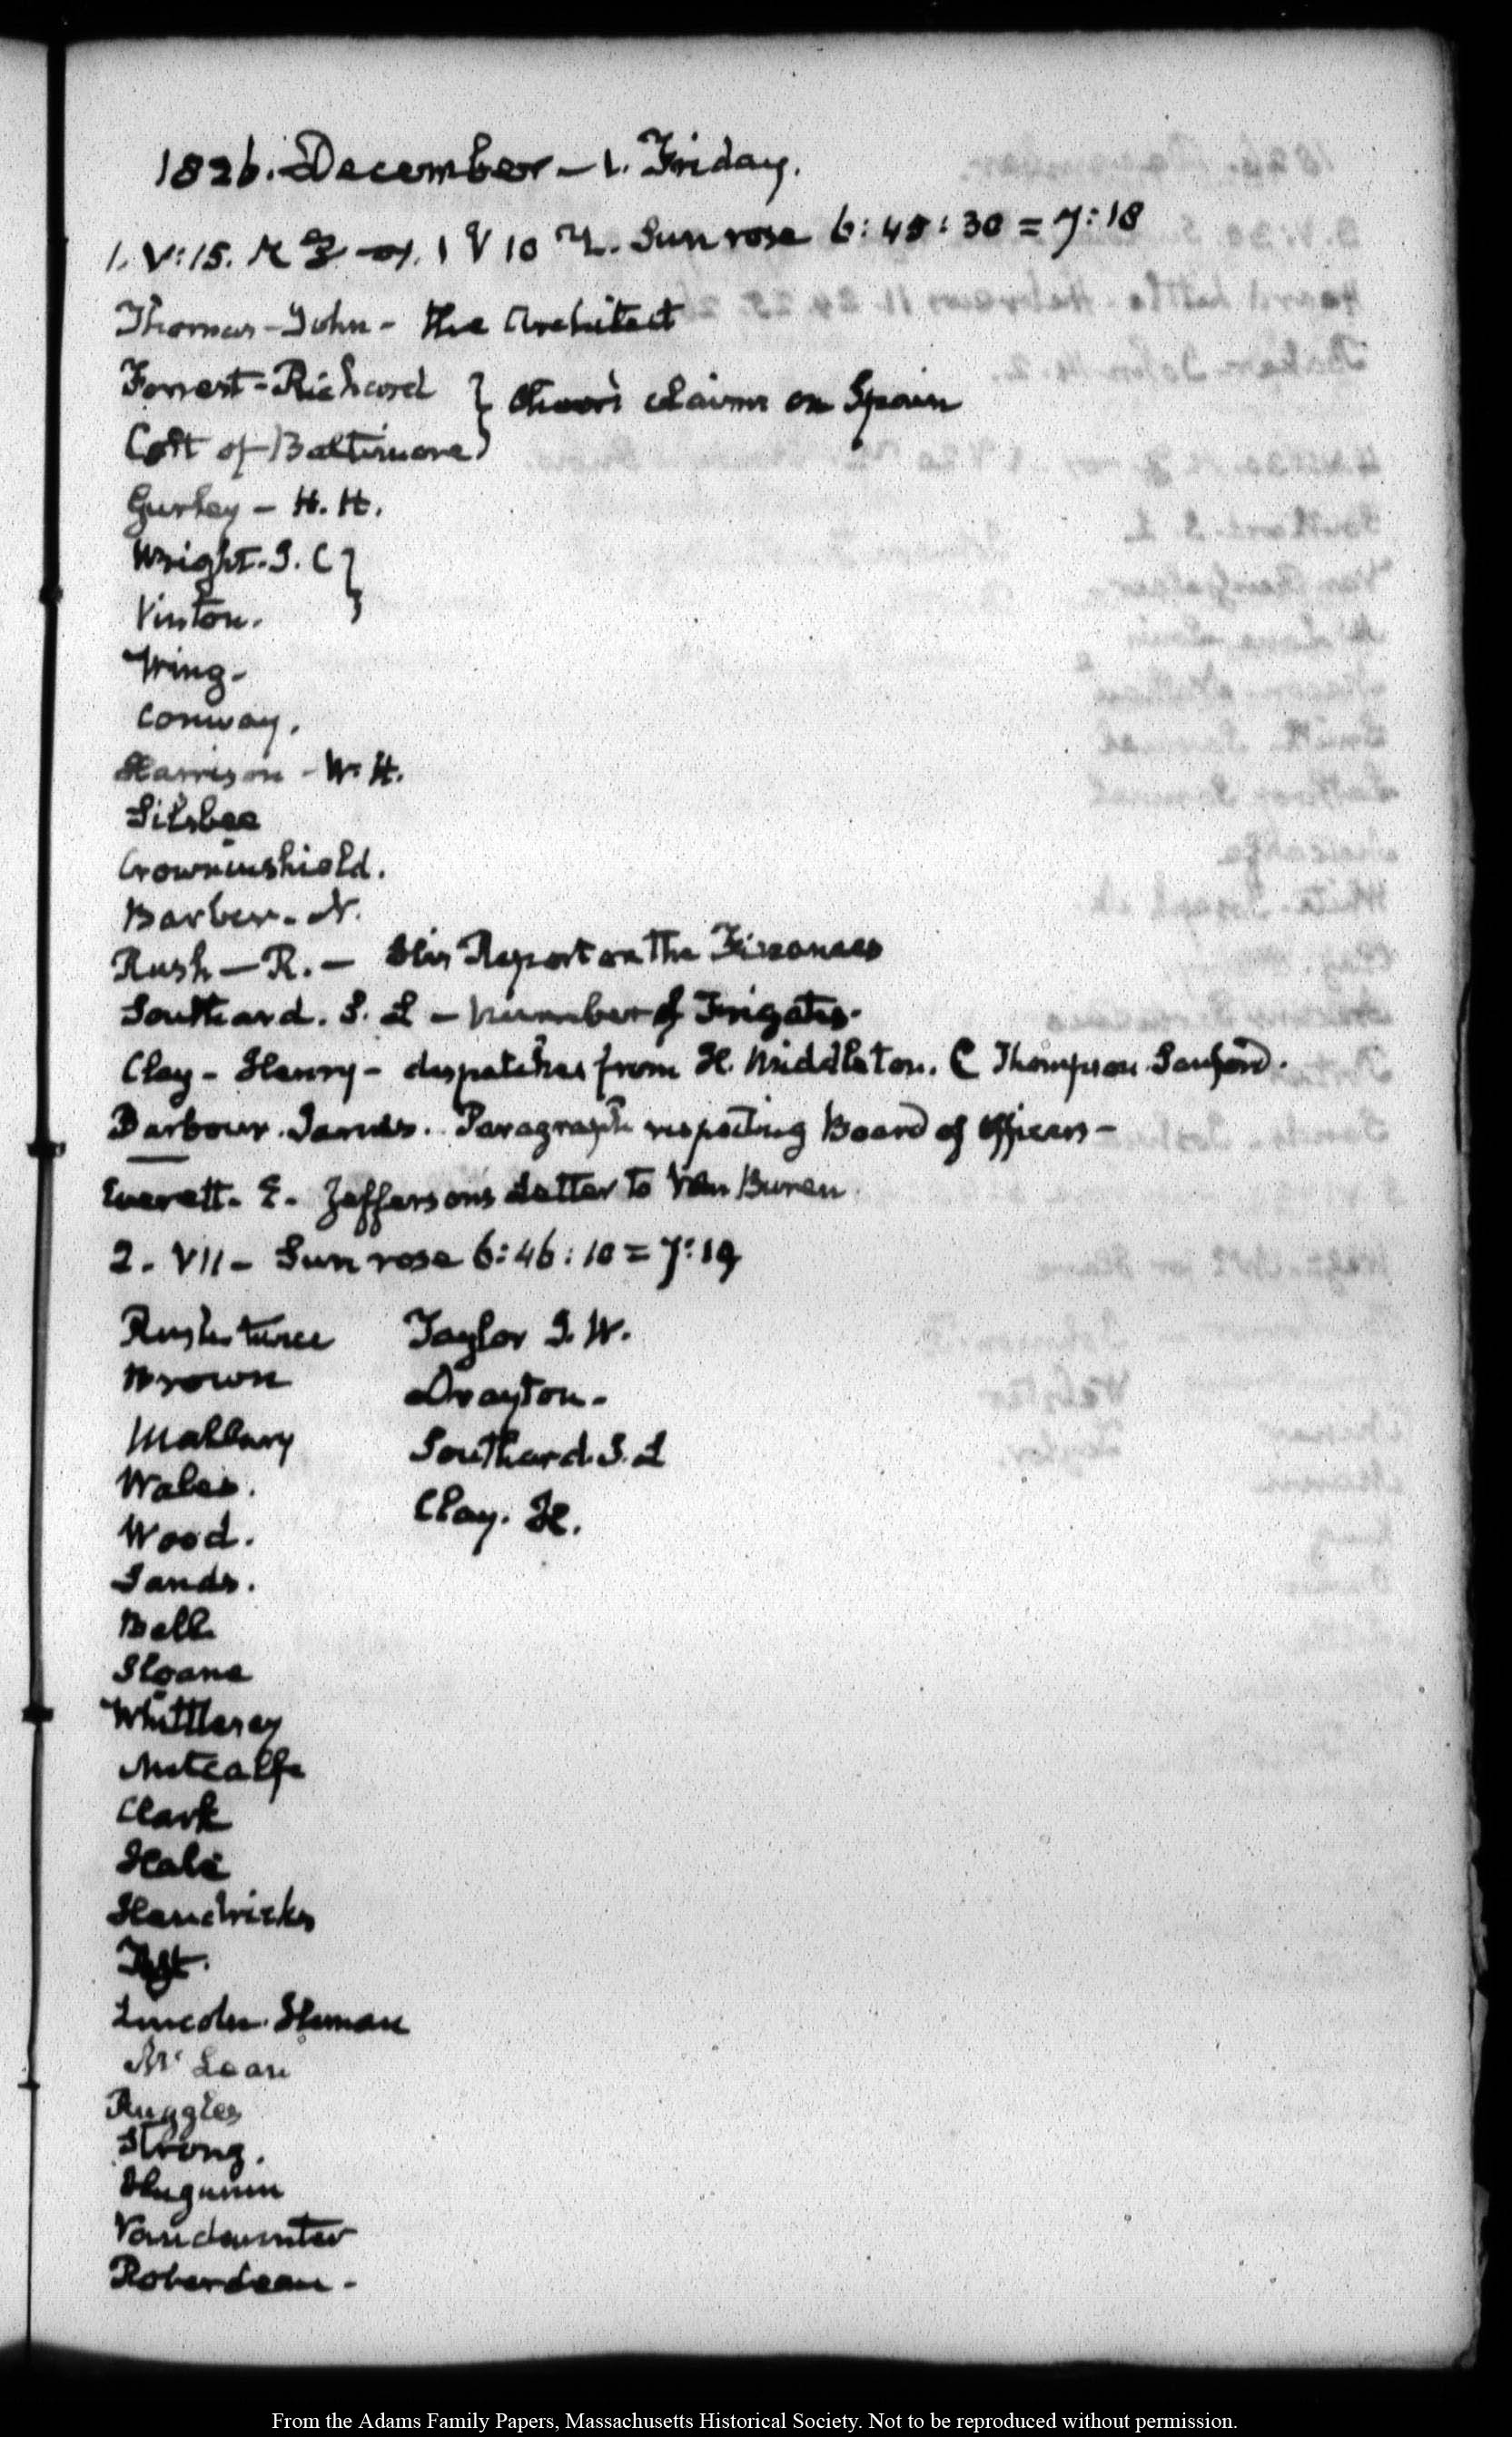 1826. December - 1. Friday.
1. V:15. Sun rose 6:45:30 = 7:18
Thomas - John - the Architect
Forrest - Richard } claims on Spain
Colt of Baltimore }
Gurley - H. H.
Wright. J. C }
Vinton. }
Wing -
Conway.
Harrison - W. H.
Silsbee
Crowninshield.
Barber - N.
Rush - R. - His Report on the Finances
Southard. S. L - number of Frigates.
Clay - Henry - despatches from H. Middleton. C Thompson.
Barbour. James. Paragraph respecting Board of Officers -
Everett. E. Jeffersons Letter to Van Buren
2. VII - Sun rose 6:46:10 = 7:19
Taylor J. W.
Brown Drayton.
Mallary Southard. S. L
Wales. Clay. H.
Wood.
Sands.
Bell
Sloane
Whittlesey
Metcalfe
Clark
Hale
Hendricks
Test.
Lincoln. Heman
Mc Lean
Ruggles
Strong.
Hugunin
Vandeventer
Roberdeau -
From the Adams Family Papers, Massachusetts Historical Society. Not to be reproduced without permission.